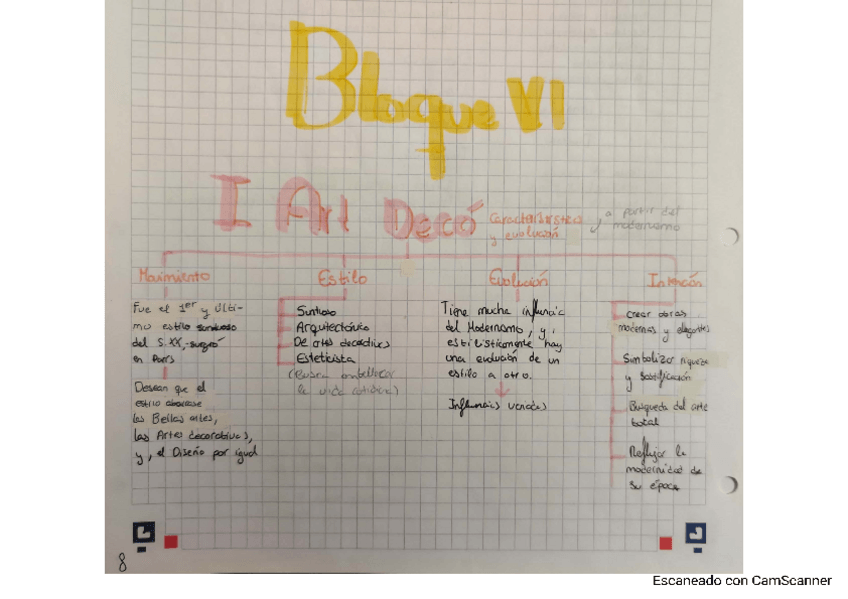 Bloque VI
I Art Decó
Características
y evolución
a partir del
modernismo
Movimiento
Fue el 1er y últi-
mo estilo suntuoso
del S.XX, surgió
en París
Desean que el
estilo abarcase
las Bellas artes,
las Artes decorativas,
y, el Diseño por igual
Estilo
Suntuoso
Arquitectónico
De artes decorativas
Esteticista
(Busca embellecer
la vida cotidiana)
Evolución
Tiene mucha influencia
del Modernismo, y,
estilísticamente hay
una evolución de un
estilo a otro.
Influencias variadas
Intención
Crear obras
modernas y elegantes
Simbolizar riqueza
y sofisticación
Búsqueda del arte
total
Reflejar la
modernidad de
su época
8
Escaneado con CamScanner